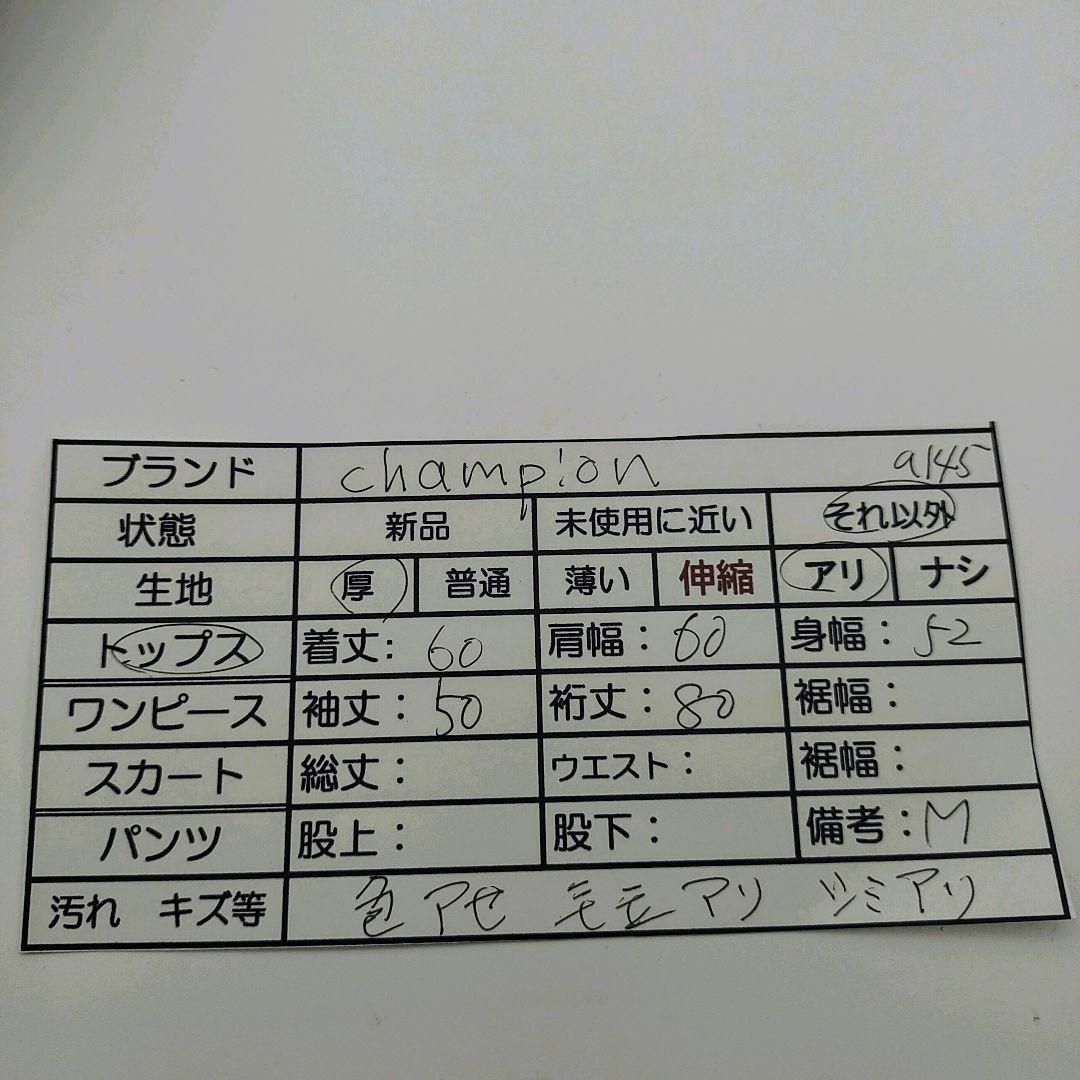 ブランド champion a145
状態 新品 未使用に近い それ以外
生地 厚 普通 薄い 伸縮 アリ ナシ
トップス 着丈: 60 肩幅: 60 身幅: 52
ワンピース 袖丈: 50 裄丈: 80 裾幅:
スカート 総丈: ウエスト: 裾幅:
パンツ 股上: 股下: 備考: M
汚れ キズ等 色アセ 毛玉アリ シミアリ